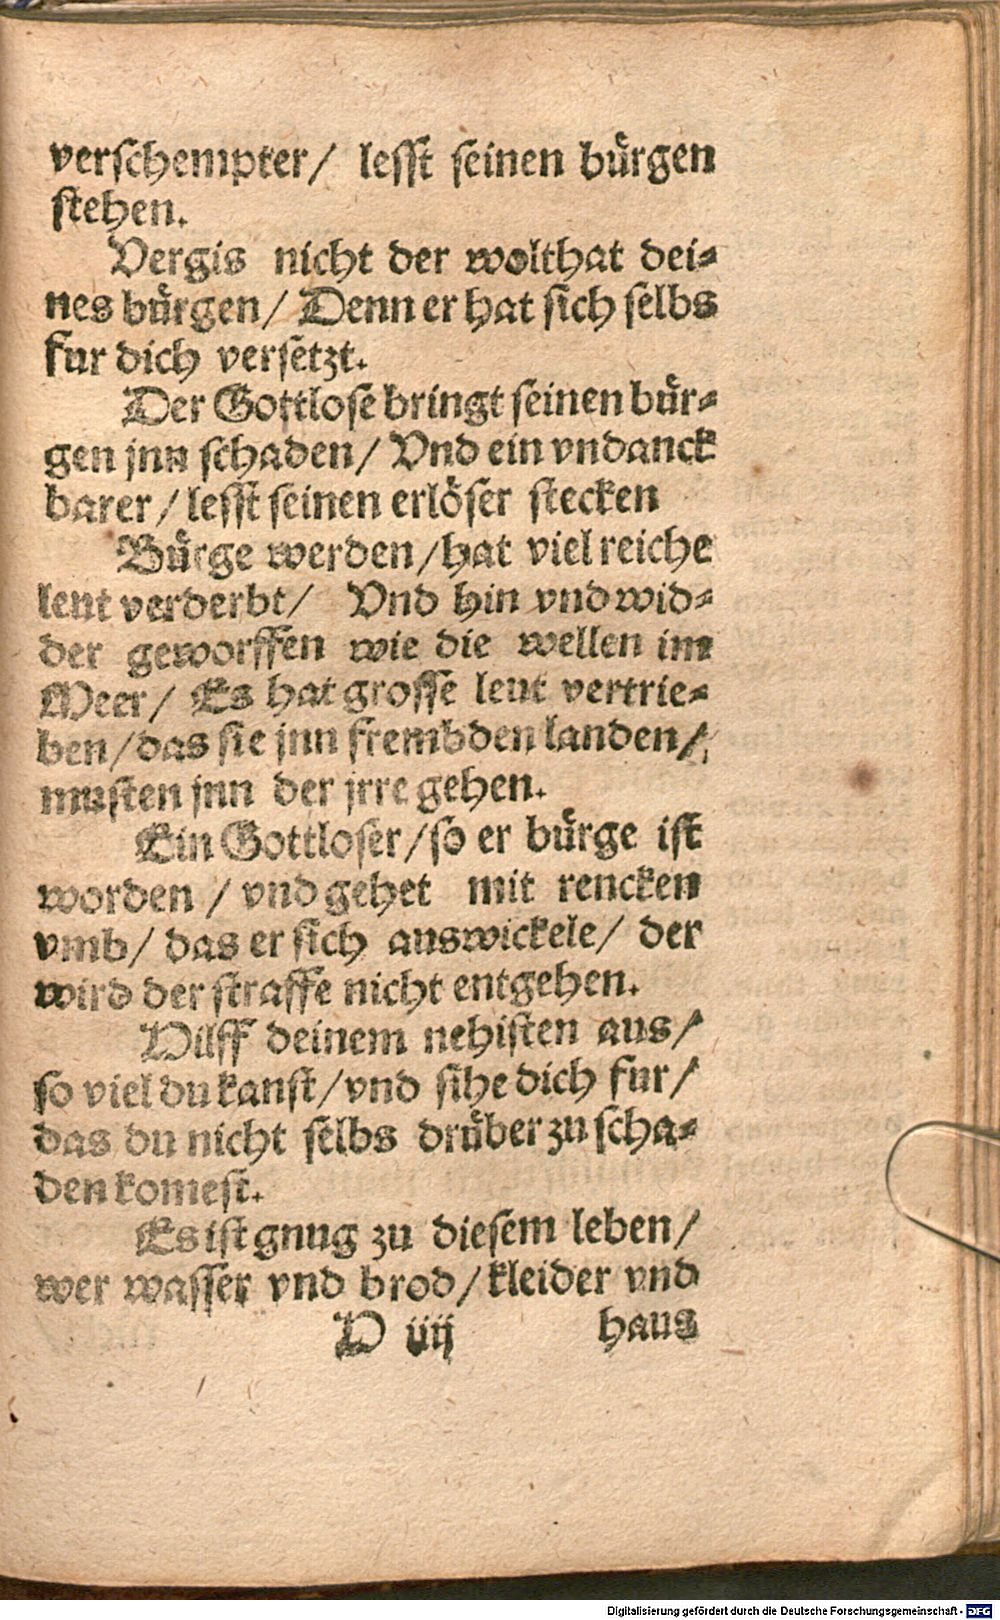 verschempter/ lesst seinen bürgen
stehen.
Vergis nicht der wolthat dei-
nes bürgen/ Denn er hat sich selbs
fur dich versetzt.
Der Gottlose bringt seinen bür-
gen jnn schaden/ Vnd ein vndanck
barer/ lesst seinen erlöser stecken
Bürge werden/ hat viel reiche
leut verderbt/ Vnd hin vnd wid-
der geworffen wie die wellen im
Meer/ Es hat grosse leut vertrie-
ben/ das sie jnn frembden landen/
musten jnn der jrre gehen.
Ein Gottloser/ so er bürge ist
worden/ vnd gehet mit rencken
vmb/ das er sich auswickele/ der
wird der straffe nicht entgehen.
Hilff deinem nehisten aus/
so viel du kanst/ vnd sihe dich fur/
das du nicht selbs drüber zu scha-
den komest.
Es ist gnug zu diesem leben/
wer wasser vnd brod/ kleider vnd
H iiij haus
Digitalisierung gefördert durch die Deutsche Forschungsgemeinschaft - DFG